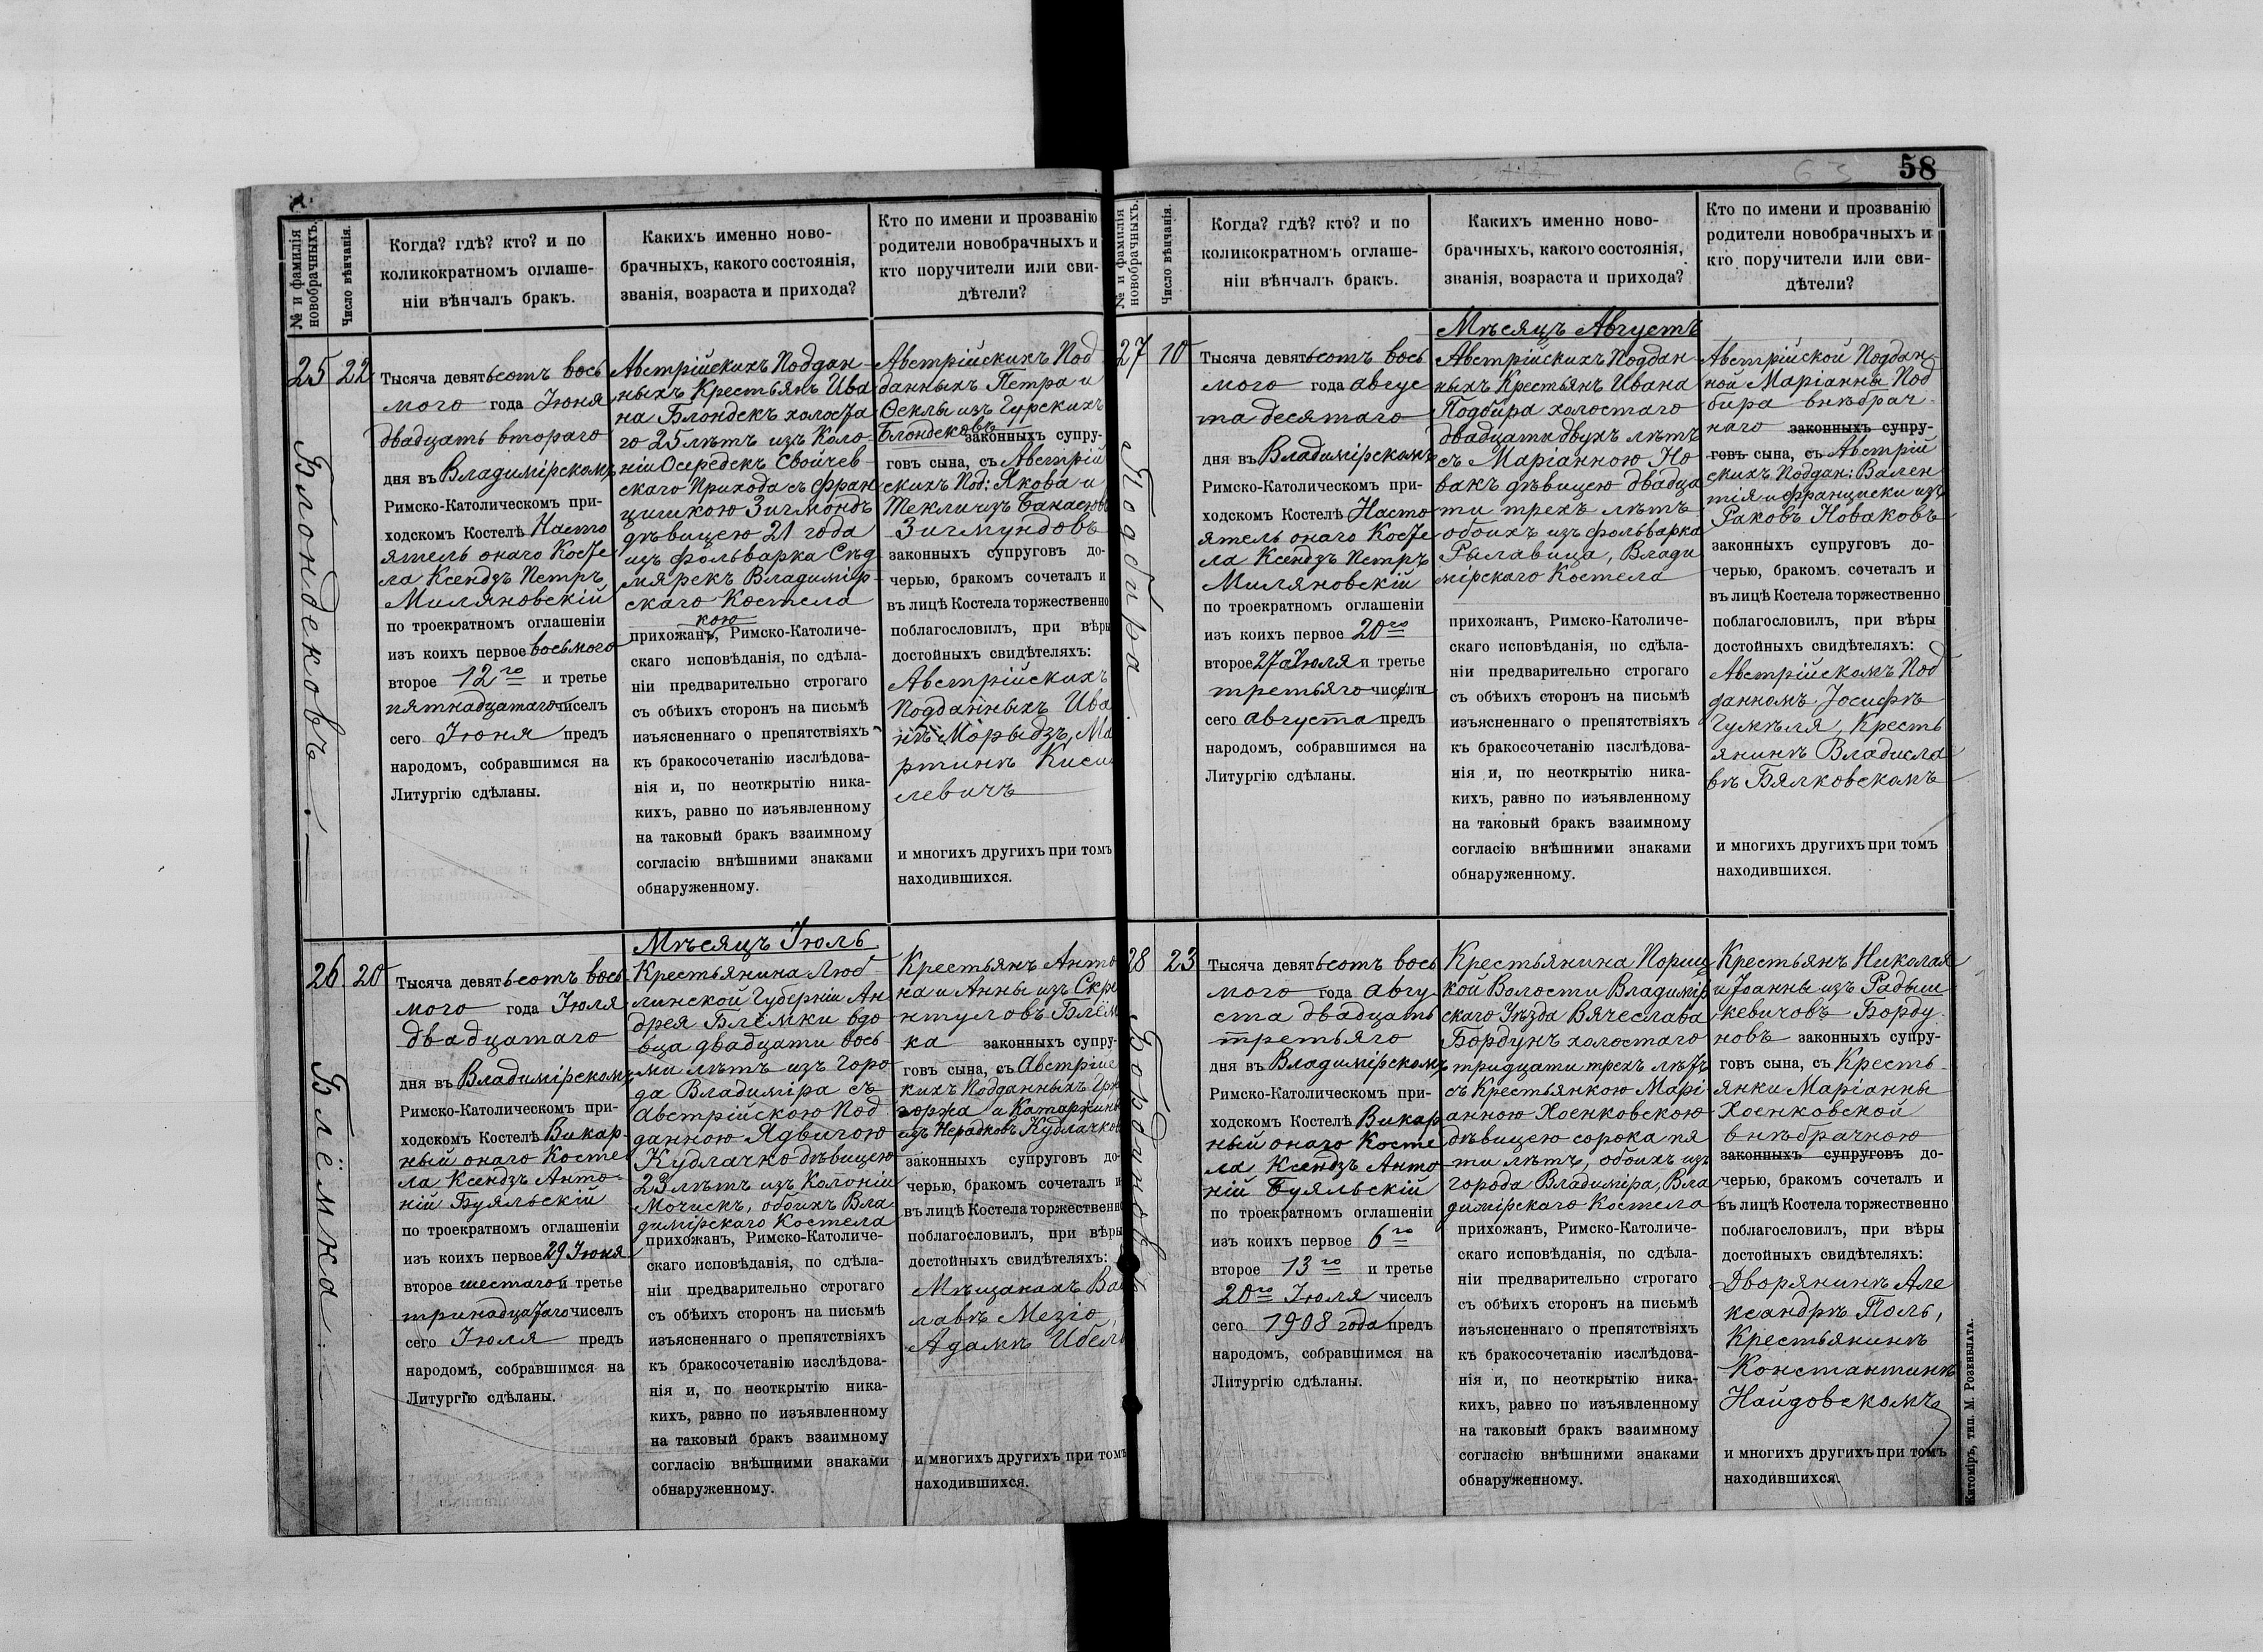 58
63
№ и фамилія
новобрачныхъ.
Число вѣнчанія.
Когда? гдѣ? кто? и по
коликократномъ оглаше-
ніи вѣнчалъ бракъ.
Какихъ именно ново-
брачныхъ, какого состоянія,
званія, возраста и прихода?
Кто по имени и прозванію
родители новобрачныхъ и
кто поручители или сви-
дѣтели?
25
Блондековъ.
22
Тысяча девятьсотъ вось
мого года Іюня
двадцать втораго
дня въ Владимірскомъ
Римско-Католическомъ при-
ходскомъ Костелѣ Насто
ятель онаго Косте
ла Ксендзъ Петръ
Миляновскій
по троекратномъ оглашеніи
изъ коихъ первое восьмого
второе 12го и третье
пятнадцатаго чиселъ
сего Іюня предъ
народомъ, собравшимся на
Литургію сдѣланы.
Австрійскихъ Поддан-
ныхъ Крестьянъ Ива
на Блондекъ холоста
го 25 лѣтъ изъ Коло-
ніи Осередекъ Свойчев-
скаго Прихода съ Фран
цишкою Зигмондъ
дѣвицею 21 года
изъ фольварка Сѣд
мярекъ Владимір-
скаго Костела
кою
прихожанъ, Римско-Католиче-
скаго исповѣданія, по сдѣла-
ніи предварительно строгаго
съ обѣихъ сторонъ на письмѣ
изъясненнаго о препятствіяхъ
къ бракосочетанію изслѣдова-
нія и, по неоткрытію ника-
кихъ, равно по изъявленному
на таковый бракъ взаимному
согласію внѣшними знаками
обнаруженному.
Австрійскихъ Под
данныхъ Петра и
Феклы изъ Гурскихъ
Блондековъ
законныхъ супру-
говъ сына, съ Австрій
скихъ Под: Якова и
Текли изъ Банасювъ
Зигмундовъ
законныхъ супруговъ до-
черью, бракомъ сочеталъ и
въ лицѣ Костела торжественно
поблагословилъ, при вѣры
достойныхъ свидѣтеляхъ:
Австрійскихъ
Подданныхъ Ива
нѣ Морыдзъ, Ма
ртинѣ Киси
левичъ
и многихъ другихъ при томъ
находившихся.
26
Блёмка.
20
Тысяча девятьсотъ вось
мого года Іюля
двадцатаго
дня въ Владимірскомъ
Римско-Католическомъ при-
ходскомъ Костелѣ Викар-
ный онаго Косте
ла Ксендзъ Анто-
ній Буяльскій
по троекратномъ оглашеніи
изъ коихъ первое 29 Іюня
второе шестаго и третье
тринадцатаго чиселъ
сего Іюля предъ
народомъ, собравшимся на
Литургію сдѣланы.
Мѣсяцъ Іюль
Крестьянина Люб-
линской Губерніи Ан
дрея Блёмки вдо
вца двадцати вось-
ми лѣтъ изъ горо
да Владиміра съ
Австрійскою Под
данною Ядвигою
Кудлачко дѣвицею
23 лѣтъ изъ Колоніи
Мочискъ, обоихъ Вла
димірскаго Костела
прихожанъ, Римско-Католиче-
скаго исповѣданія, по сдѣла-
ніи предварительно строгаго
съ обѣихъ сторонъ на письмѣ
изъясненнаго о препятствіяхъ
къ бракосочетанію изслѣдова-
нія и, по неоткрытію ника-
кихъ, равно по изъявленному
на таковый бракъ взаимному
согласію внѣшними знаками
обнаруженному.
Крестьянъ Анто
на и Анны изъ Скре
нтуловъ Блём
ка законныхъ супру-
говъ сына, съ Австрійс
кихъ Подданныхъ Грже
горжа и Катаржины
изъ Нерадковъ Кудлачков
законныхъ супруговъ до-
черью, бракомъ сочеталъ и
въ лицѣ Костела торжественно
поблагословилъ, при вѣры
достойныхъ свидѣтеляхъ:
Мѣщанахъ Вац
лавѣ Мезіо,
Адамѣ Ибель
и многихъ другихъ при томъ
находившихся.
№ и фамилія
новобрачныхъ.
Число вѣнчанія.
Когда? гдѣ? кто? и по
коликократномъ оглаше-
ніи вѣнчалъ бракъ.
Какихъ именно ново-
брачныхъ, какого состоянія,
званія, возраста и прихода?
Кто по имени и прозванію
родители новобрачныхъ и
кто поручители или сви-
дѣтели?
27
Подбира.
10
Тысяча девятьсотъ вось
мого года авгус
та десятаго
дня въ Владимірскомъ
Римско-Католическомъ при-
ходскомъ Костелѣ Насто
ятель онаго Косте
ла Ксендзъ Петръ
Миляновскій
по троекратномъ оглашеніи
изъ коихъ первое 20го
второе 27 Іюля и третье
третьяго числа
сего августа предъ
народомъ, собравшимся на
Литургію сдѣланы.
Мѣсяцъ Августъ
Австрійскихъ Поддан-
ныхъ Крестьянъ Ивана
Подбира холостаго
двадцати двухъ лѣтъ
съ Маріанною Но
вакъ дѣвицею двадца
ти трехъ лѣтъ
обоихъ изъ фольварка
Рылавица, Влади
мірскаго Костела
прихожанъ, Римско-Католиче-
скаго исповѣданія, по сдѣла-
ніи предварительно строгаго
съ обѣихъ сторонъ на письмѣ
изъясненнаго о препятствіяхъ
къ бракосочетанію изслѣдова-
нія и, по неоткрытію ника-
кихъ, равно по изъявленному
на таковый бракъ взаимному
согласію внѣшними знаками
обнаруженному.
Австрійской Поддан-
ной Маріанны Под
бира внѣбрач-
наго законныхъ супру-
говъ сына, съ Австрій
скихъ Поддан: Вален
тія и Франциски изъ
Раковъ Новаковъ
законныхъ супруговъ до-
черью, бракомъ сочеталъ и
въ лицѣ Костела торжественно
поблагословилъ, при вѣры
достойныхъ свидѣтеляхъ:
Австрійскомъ Под
данномъ Іосифѣ
Гумѣля, Кресть
янинѣ Владисла
вѣ Бялковскомъ
и многихъ другихъ при томъ
находившихся.
28
Бордуновъ
23
Тысяча девятьсотъ вось
мого года авгу
ста двадцать
третьяго
дня въ Владимірскомъ
Римско-Католическомъ при-
ходскомъ Костелѣ Викар
ный онаго Косте
ла Ксендзъ Анто
ній Буяльскій
по троекратномъ оглашеніи
изъ коихъ первое 6го
второе 13го и третье
20го Іюля чиселъ
сего 1908 года предъ
народомъ, собравшимся на
Литургію сдѣланы.
Крестьянина Пориц
кой Волости Владимір
скаго Уѣзда Вячеслава
Бордунъ холостаго
тридцати трехъ лѣтъ
съ Крестьянкою Марі-
анною Хоенковскою
дѣвицею сорока пя
ти лѣтъ, обоихъ изъ
города Владиміра, Вла
димірскаго Костела
прихожанъ, Римско-Католиче-
скаго исповѣданія, по сдѣла-
ніи предварительно строгаго
съ обѣихъ сторонъ на письмѣ
изъясненнаго о препятствіяхъ
къ бракосочетанію изслѣдова-
нія и, по неоткрытію ника-
кихъ, равно по изъявленному
на таковый бракъ взаимному
согласію внѣшними знаками
обнаруженному.
Крестьянъ Николая
и Іоанны изъ Радыш
кевичовъ Борду-
новъ законныхъ супру-
говъ сына, съ Кресть-
янки Маріанны
Хоенковской
внѣбрачною
законныхъ супруговъ до-
черью, бракомъ сочеталъ и
въ лицѣ Костела торжественно
поблагословилъ, при вѣры
достойныхъ свидѣтеляхъ:
Дворянинѣ Але
ксандрѣ Поль,
Крестьянинѣ
Константинѣ
Найдовскомъ
и многихъ другихъ при томъ
находившихся.
Житоміръ, тип. М. Розенвлата.